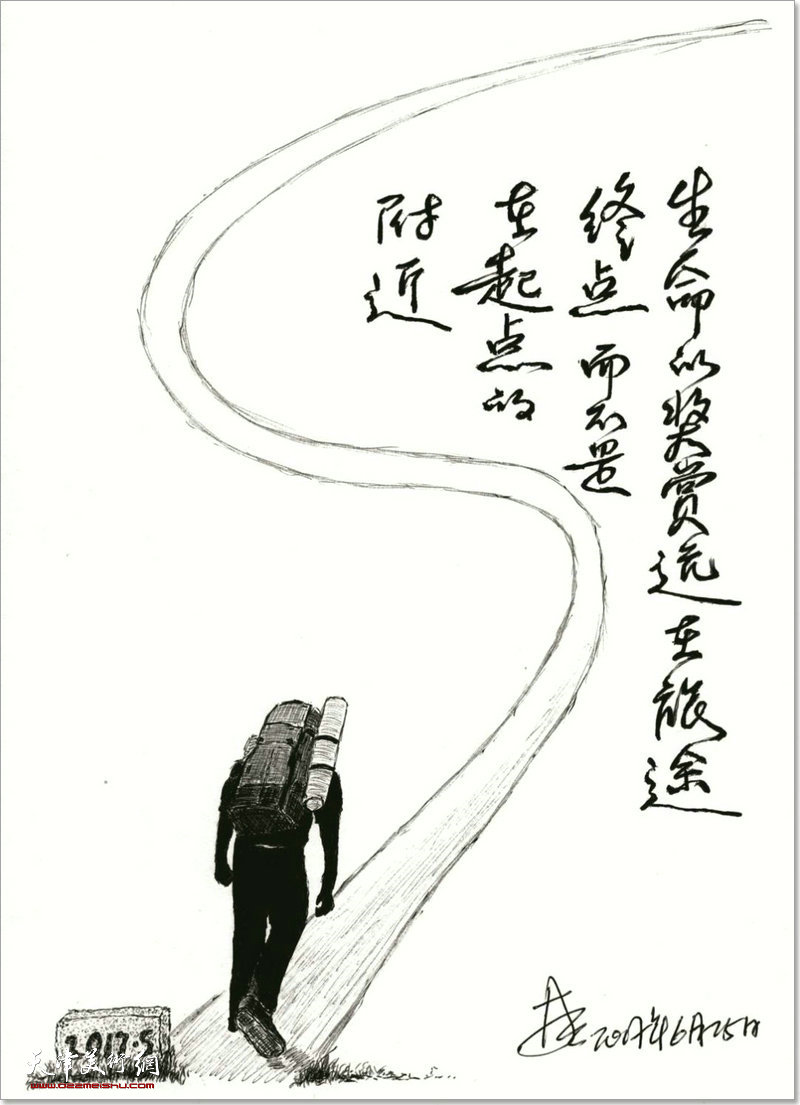 生命的奖赏远在旅途
终点而不是
在起点的
附近
2017年6月25日
2017.5
天津美術網
www.022meishu.com